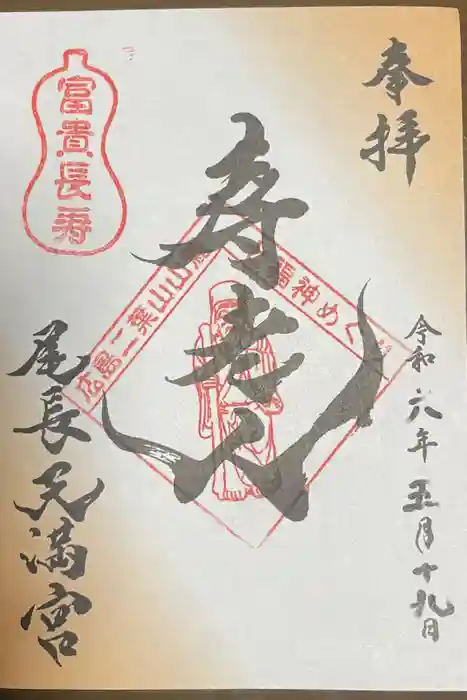 奉拝
令和六年五月十九日
寿老人
広島二葉山山麓
七福神めぐり
富貴長寿
尾長天満宮